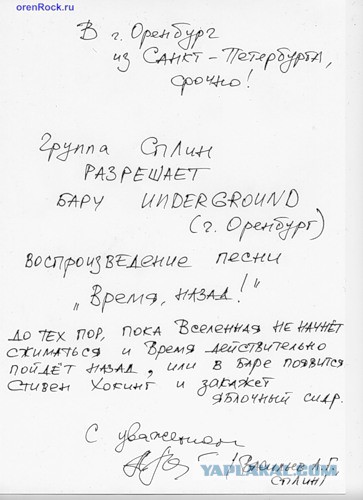 orenRock.ru
В г. Оренбург
из Санкт-Петербурга,
срочно!
Группа Сплин
РАЗРЕШАЕТ
БАРУ UNDERGROUND
(г. Оренбург)
ВОСПРОИЗВЕДЕНИЕ ПЕСНИ
„Время, НАЗАД!"
ДО ТЕХ ПОР, ПОКА ВСЕЛЕННАЯ НЕ НАЧНЁТ
СЖИМАТЬСЯ И ВРЕМЯ ДЕЙСТВИТЕЛЬНО
ПОЙДЁТ НАЗАД, ИЛИ В БАРЕ ПОЯВИТСЯ
СТИВЕН ХОКИНГ И ЗАКАЖЕТ
ЯБЛОЧНЫЙ СИДР.
С уважением
СПЛИН)
YAPLAKAL.COM